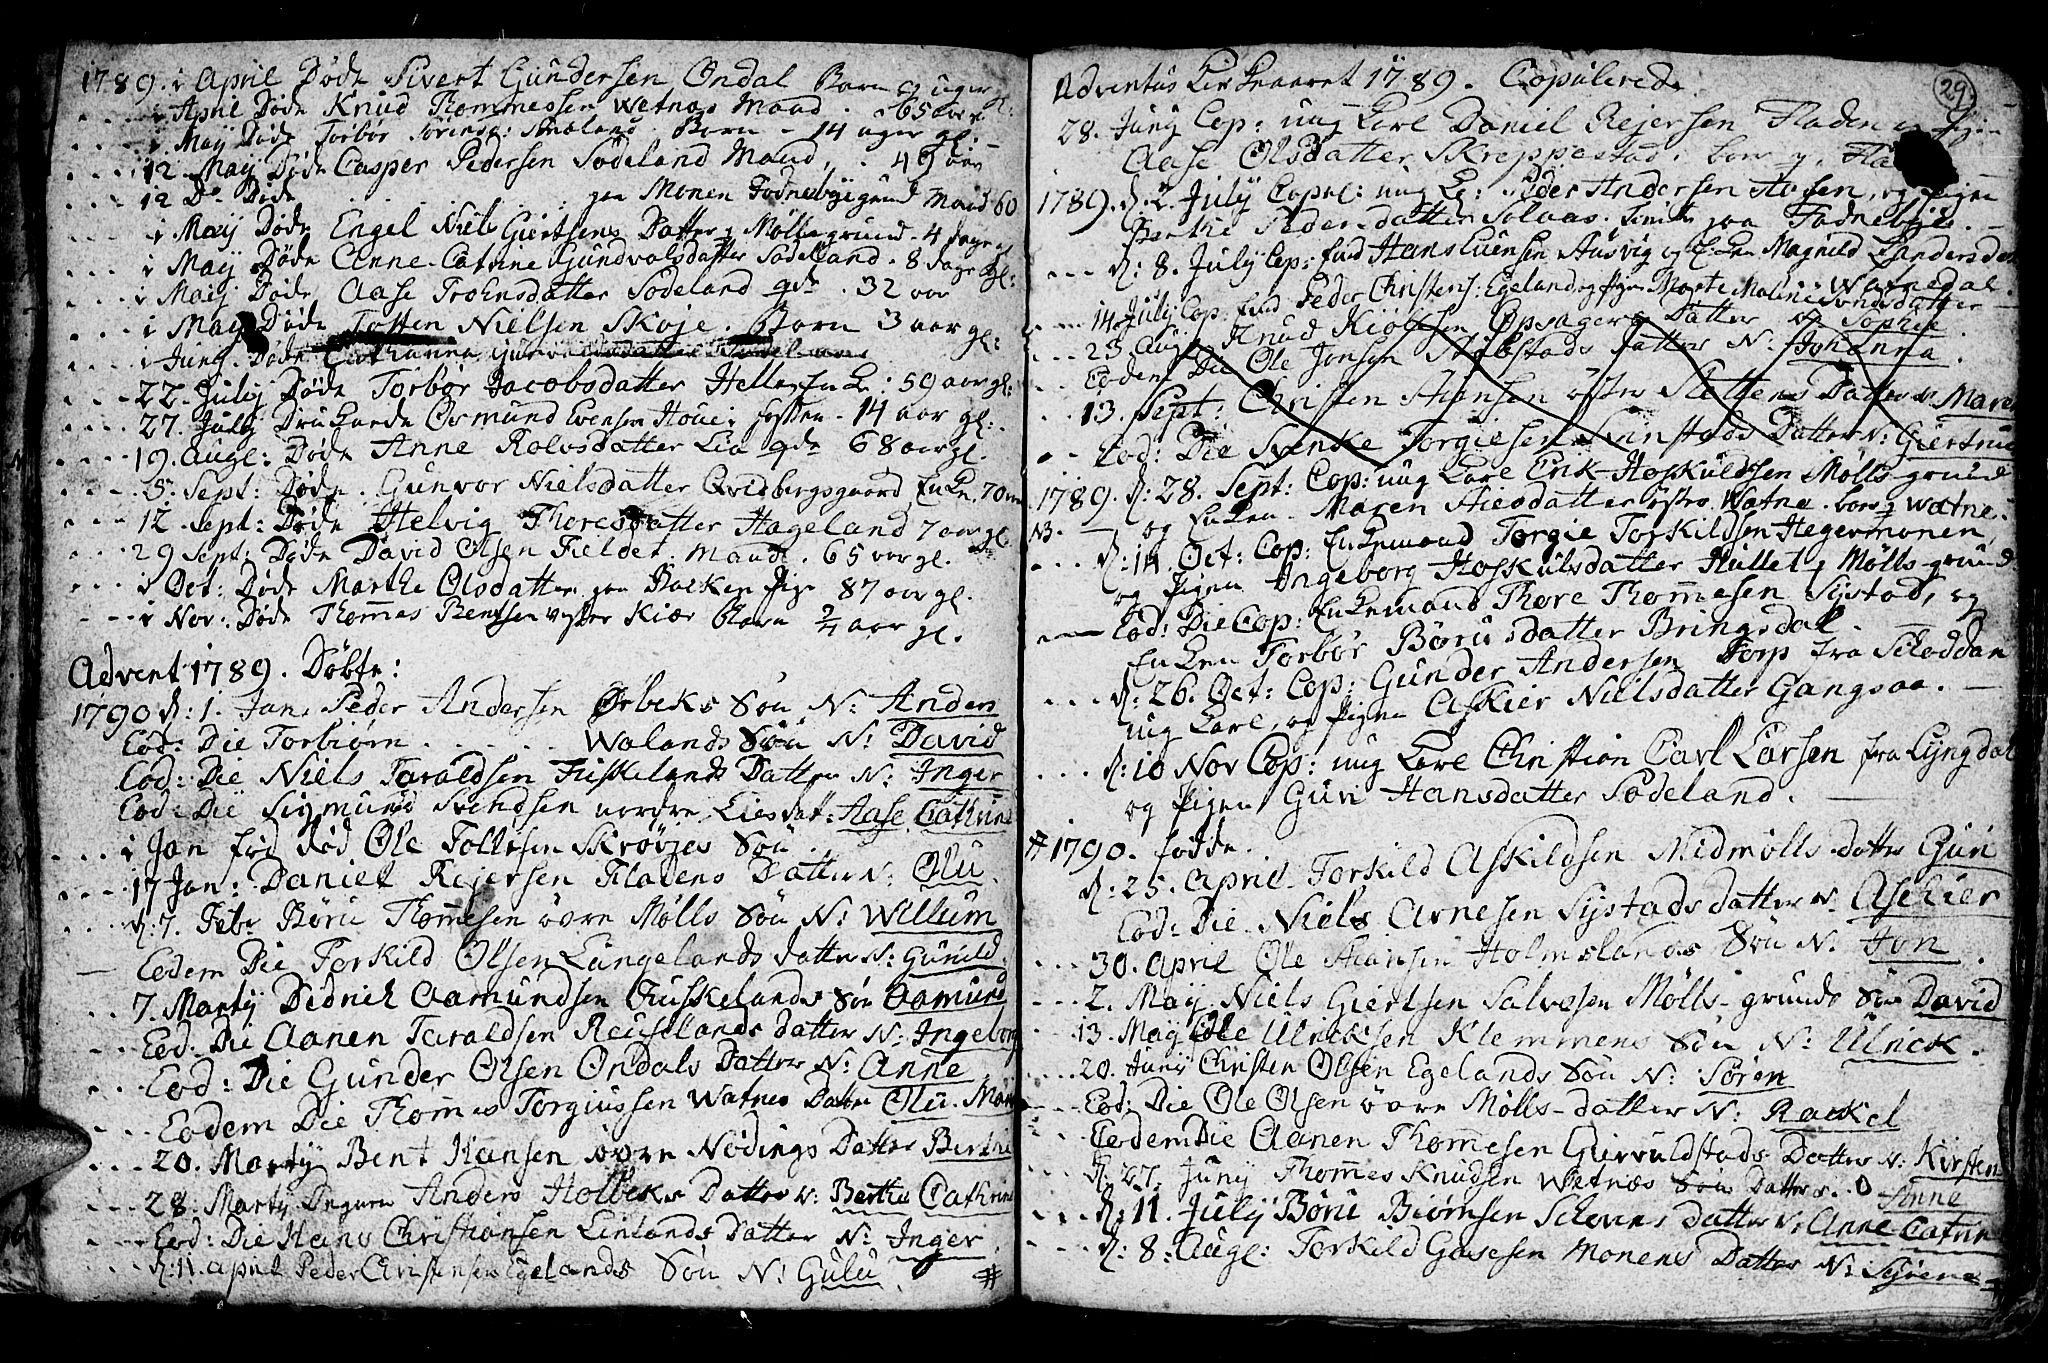 1789. i April Døde Sivert Gundersen Ondal Barn uger gl:
i April Døde Knud Thommessen Watnes Mand. 65 aar
i Maij Døde Torbor Sørensd: Barn - 14 uger gl:
12. Maij Døde Casper Pedersen Sødeland Mand, 49 aar
12 Do Døde . . . paa Monen Fodnebÿe grund Mand 60
i Maij Døde Engel Niels Giertsens Datter Møllsgrund. 4 dage gl
i Maij Døde Anne Catrine Gundvalsdatter Sødeland. 8 dage gl:
i Maij Døde Aase Troensdatter Sodeland gde. 32 aar
i Maij Døde Tosten Nielsen Skoje. Barn 3 aar gl:
i Junij Døde
22. Julij Døde Torbor Jacobsdatter Helle Enke. 59 aar gl:
27. Julij Druknede Osmund Evensen Houe i fossen - 14 aar gl:
19. Augl: Døde Anne Rolvsdatter Lia gde 68 aar gl.
5. Sept: Døde. Gunvor Nielsdatter Qvidbergsgaard Enke. 70 aar
12. Sept: Døde Helvig Thoresdatter Hageland 7 aar gl.
29 Sept: Døde David Olsen Fieldet. Mand. 65 aar gl.
i Oct: Døde Marthe Olsdatter paa Backen Pige 87 aar gl.
i Nov: Døde Thom̄es Bentsen vester Kiær Barn 3/4 aar gl.
Advent 1789. Døbte:
1790 d: 1. Jan. Peder Andersen Ørbeks Søn N: Anders
Eod: Die Torbiörn . . . Walands Søn N: David
Eod: Die Niels Taraldsen Fuskelands Datter N: Inger
Eod: Die Sigmund Svendsen nordre Lies dat: Aase Cathrine
i Jan fød død Ole Tollefsen Skrøvjes Søn
17 Jan: Daniel Rejersen Fladens Datter N: Olu
d: 7. Febr Børu Thom̄esen övre Mølls Søn N: Willum
Eodem Die Torkild Olsen Langelands datter N: Gunild.
7. Martij Didrich Aamundsen Fuskelands Søn Aamund
Eod: Die Aanen Taraldsen Reuselands datter N: Ingeborg
Eod: Die Gunder Olsen Ondals Datter N: Anne
Eodem Die Thom̄es Torgiussen Watnes Datter Olu. Mari
20. Martij Bent Hansen øvre Nødings Datter Berthe
28. Martij Degnen Anders Holbeks Datter N: Bertha Cathrine
Eod: Die Hans Christiansen Linlands Datter N: Inger
d: 11. april Peder Christensen Egelands Søn N: Gulu #
29
Adventus Kirkeaaret 1789. Copulerede.
28. Junij Cop: ung Karl Daniel Rejersen Fladen og Pigen
Aase Olsdatter Skreppestad. boer p. Fla
1789. d. 2. July Copul: ung K: Peder Andersen Aasen, og Pigen
Berthe Pedersdatter Solaas. Tienste paa Fodnebÿe.
d: 8. July Cop: Enk Hans Evensen Ausvig og Enken Magnild Sandersdat
Watnedal.
14. July Cop: Enk Peder Christens: Egeland og Pigen Marte Malene Svendsdatter
23. Aug: Knud Kiölsen Opsagers Datter N: Sophie
Eodem Die Ole Jonsen Stubstads Datter N: Johanna
13. Sept: Christen Hansen östre Slettens Datter N: Maren
Eod: Die Svenke Torgiesen Svinstads Datter N: Giertrud
1789. d: 28. Sept: Cop: ung Karl Erik Hoskuldsen Mølls-grund
og Enken Maren östre Watne. boer p Watne.
d: 14. Oct: Cop: Enkemand Torgie Torkildsen Hegermonen,
og Pigen Ingeborg Hoskulsdatter Hullet p Mølls grund
Eod: Die Cop: Enkemand Thore Thom̄esen Sÿstad, og
Enken Torbor Børusdatter Bringsdal.
d: 26. Oct: Cop: Gunder Andersen Torp fra Schoddan
ung Karl, og Pigen Askier Nielsdatter Gangsaa.
d: 10 Nov Cop: ung Karl Christian Carl Larsen fra Lyngdal
og Pigen Guri Hansdatter Sødeland.
# 1790. Fødde.
d: 25. April Torkild Askildsen Midmølls datter Gun
Eod: Die Niels Arnesen Sÿstads datter N: Askier
30. April Ole Hansen Holmslands Søn N: Jon
2. Maij Niels Giertsen Salvesen Mølls-grunds Søn David
13. Maij Ole Ulricksen Klemmens Søn N: Ulrick.
20. Junij Christen Olsen Egelands Søn N: Søren
Eod: Die Ole Olsen övre Mølls-datter N: Rackel
Eodem Die Aanen Thom̄esen Gieruldstads Datter N: Kirsten
d. 27. Junij Thom̄es Knudsen Watnes Søn Datter. O Anne
d: 11. Julij Børu Biörnsen Schovens datter N: Anne Catrine
d: 8. Augl: Torkild Gusesen Monens Datter N: Syrene